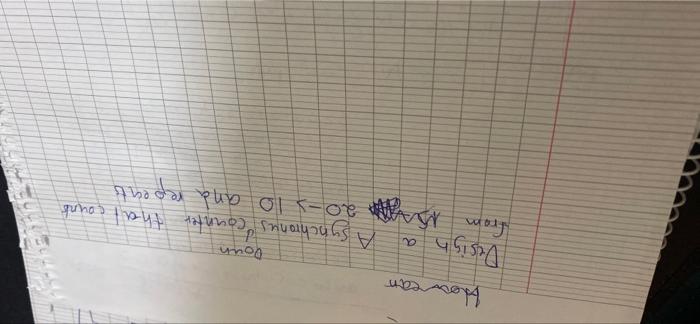 How can
Down
Design a Asynchronus counter that count
from 20 -> 10 and repeats